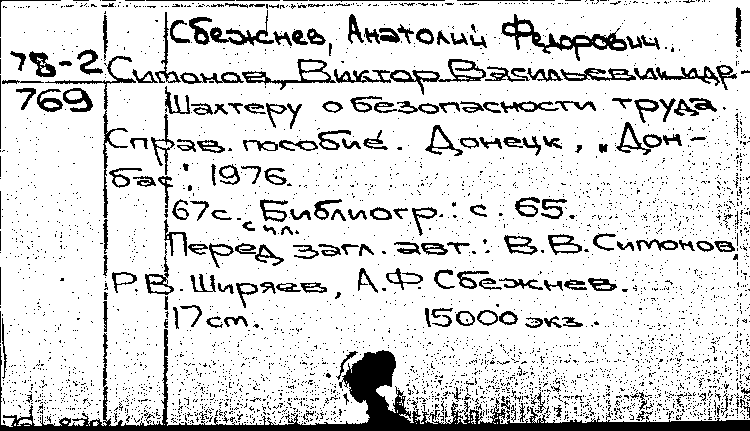 Сбежнев, Анатолий Федорович.
78-2 Ситонов, Виктор Васильевич и др. -
769 Шахтеру о безопасности труда.
Справ. пособие. Донецк, "Дон-
бас", 1976.
67с. с ил. Библиогр.: с. 65.
Перед загл. авт.: В.В. Ситонов,
Р.В. Ширяев, А.Ф Сбежнев.
17 cm. 15000 экз.